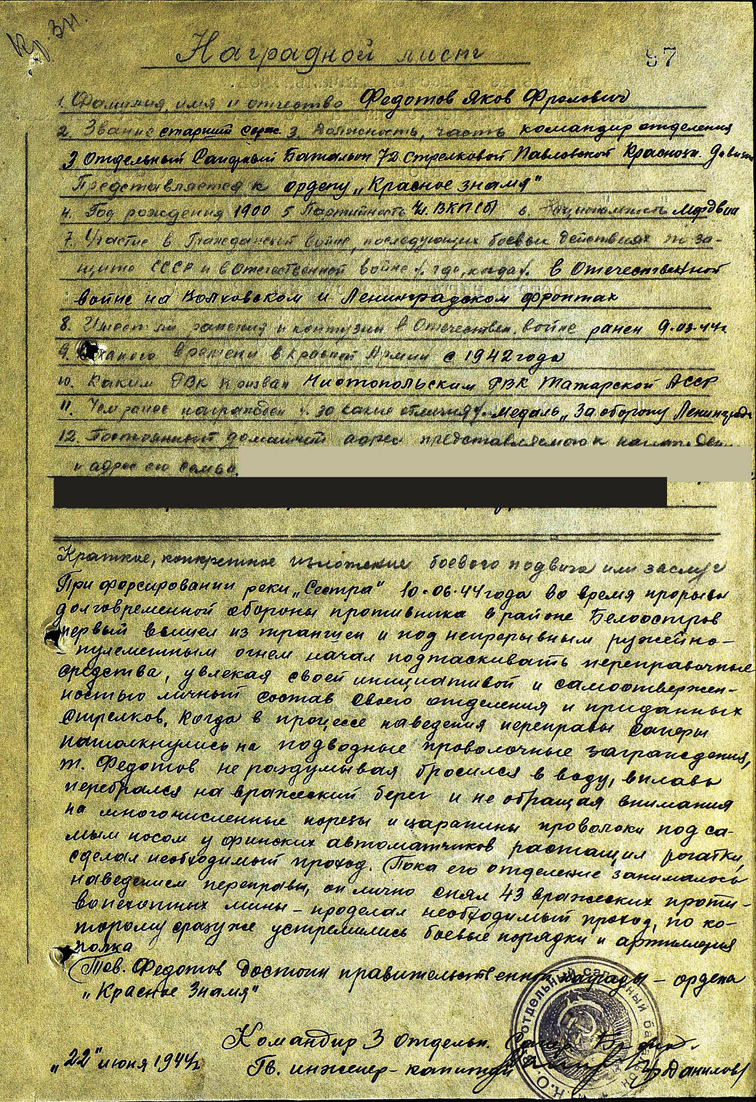 Наградной лист 97
1. Фамилия, имя и отчество Федотов Яков Фролович
2. Звание старший серж. 3. Должность, часть командир отделения
3 Отдельный Саперный Батальон 72 Стрелковой Павловской Красноз. Дивизи
Представляется к ордену „Красное знамя"
4. Год рождения 1900 5 Партийность чл. ВКП(б) 6. Национальность Мордвин
7. Участие в Гражданской войне, последующих боевых действиях по за-
щите СССР и в Отечественной войне (где, когда) в Отечественной
войне на Волховском и Ленинградском фронтах
8. Имеет ли ранения и контузии в Отечествен. войне ранен 9.03.44г
9. С какого времени в Красной Армии с 1942 года
10. Каким РВК призван РВК Татарской АССР
11. Чем ранее награжден (за какие отличия) медаль „За оборону Ленинград
12. Постоянный домашний адрес представляемого к награжден
и адрес его семьи
Краткое, конкретное изложение боевого подвига или заслуг
При форсировании реки „Сестра" 10.06.44 года во время прорыва
долговременной обороны противника в районе Белоостров
первый вышел из траншеи и под непрерывным ружейно-
пулеметным огнем начал подтаскивать переправочные
средства, увлекая своей инициативой и самоотвержен-
ностью личный состав своего отделения и приданных
стрелков. Когда в процессе наведения переправы саперы
натолкнулись на подводные проволочные заграждения,
т. Федотов не раздумывая бросился в воду, вплавь
перебрался на вражеский берег и не обращая внимания
на многочисленные порезы и царапины проволоки под са-
мым носом у финских автоматчиков растащил рогатки,
сделал необходимый проход. Пока его отделение занималось
наведением переправы, он лично снял 43 вражеских проти-
вопехотных мины – проделал необходимый проход, по ко-
торому сразу же устремились боевые порядки и артиллерия
полка
Тов. Федотов достоин правительственной награды – ордена
„Красное Знамя"
Командир 3 отдельн.
„22" июня 1944г. Гв. инженер-капитан Данилов